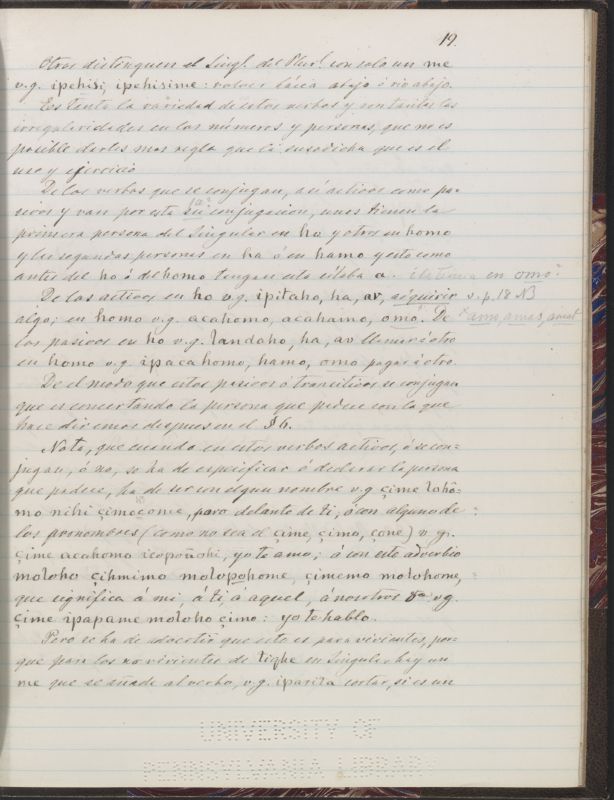 19.
Otros distinguen el Singr. del Plurl. con solo un me
v.g. ipehisi, ipehisime: volver hácia abajo ó rio abajo.
Es tanta la variedad de estos verbos y son tantas las
irregularidades en los números y personas, que no es
posible darles mas regla que la susodicha que es el
uso y ejercicio
De los verbos que se conjugan, asi activos como pa-
sivos y van por esta 1a. conjugacion, unos tienen la
primera persona del Singular en ho y otros en homo
y las segundas personas en ha ó en hamo y esto como
antes del ho ó del homo tengan esta sílaba a. en omo
De los activos en ho v.g. ipitaho, ha, av, adquirir v. p. 18 N3
algo; en homo v.g. acahomo, acahamo, omo. De amo, amas, amat
los pasivos en ho v.g. landaho, ha, av llamar á otro
en homo v.g. ipacahomo, hamo, omo pagar á otro.
De el modo que estos pasivos ó transitivos se conjugan
que es concertando la persona que padece con la que
hace diremos despues en el § 6.
Nota, que cuando en estos verbos activos, ó se con-
jugan, ó no, se ha de especificar ó declarar la persona
que padece, ha de ser con algun nombre v.g çime tohô-
mo nihi çimoçome, paro delante de ti, ó con alguno de
los pronombres (como no sea el çime, çimo, çone) v.gr.
çime acahomo icopoñohi, yo te amo; ó con este adverbio
motoho çihmimo motopohome, çimemo motohome,
que significa á mi, á ti, á aquel, á nosotros &a v.g.
çime ipapame motoho çimo: yo te hablo.
Pero se ha de advertir que esto es para vivientes, por-
que para los no vivientes de tiqhe en Singular hay un
me que se añade al verbo, v.g. iparita cortar, si es un
UNIVERSITY OF
PENNSYLVANIA LIBRARY